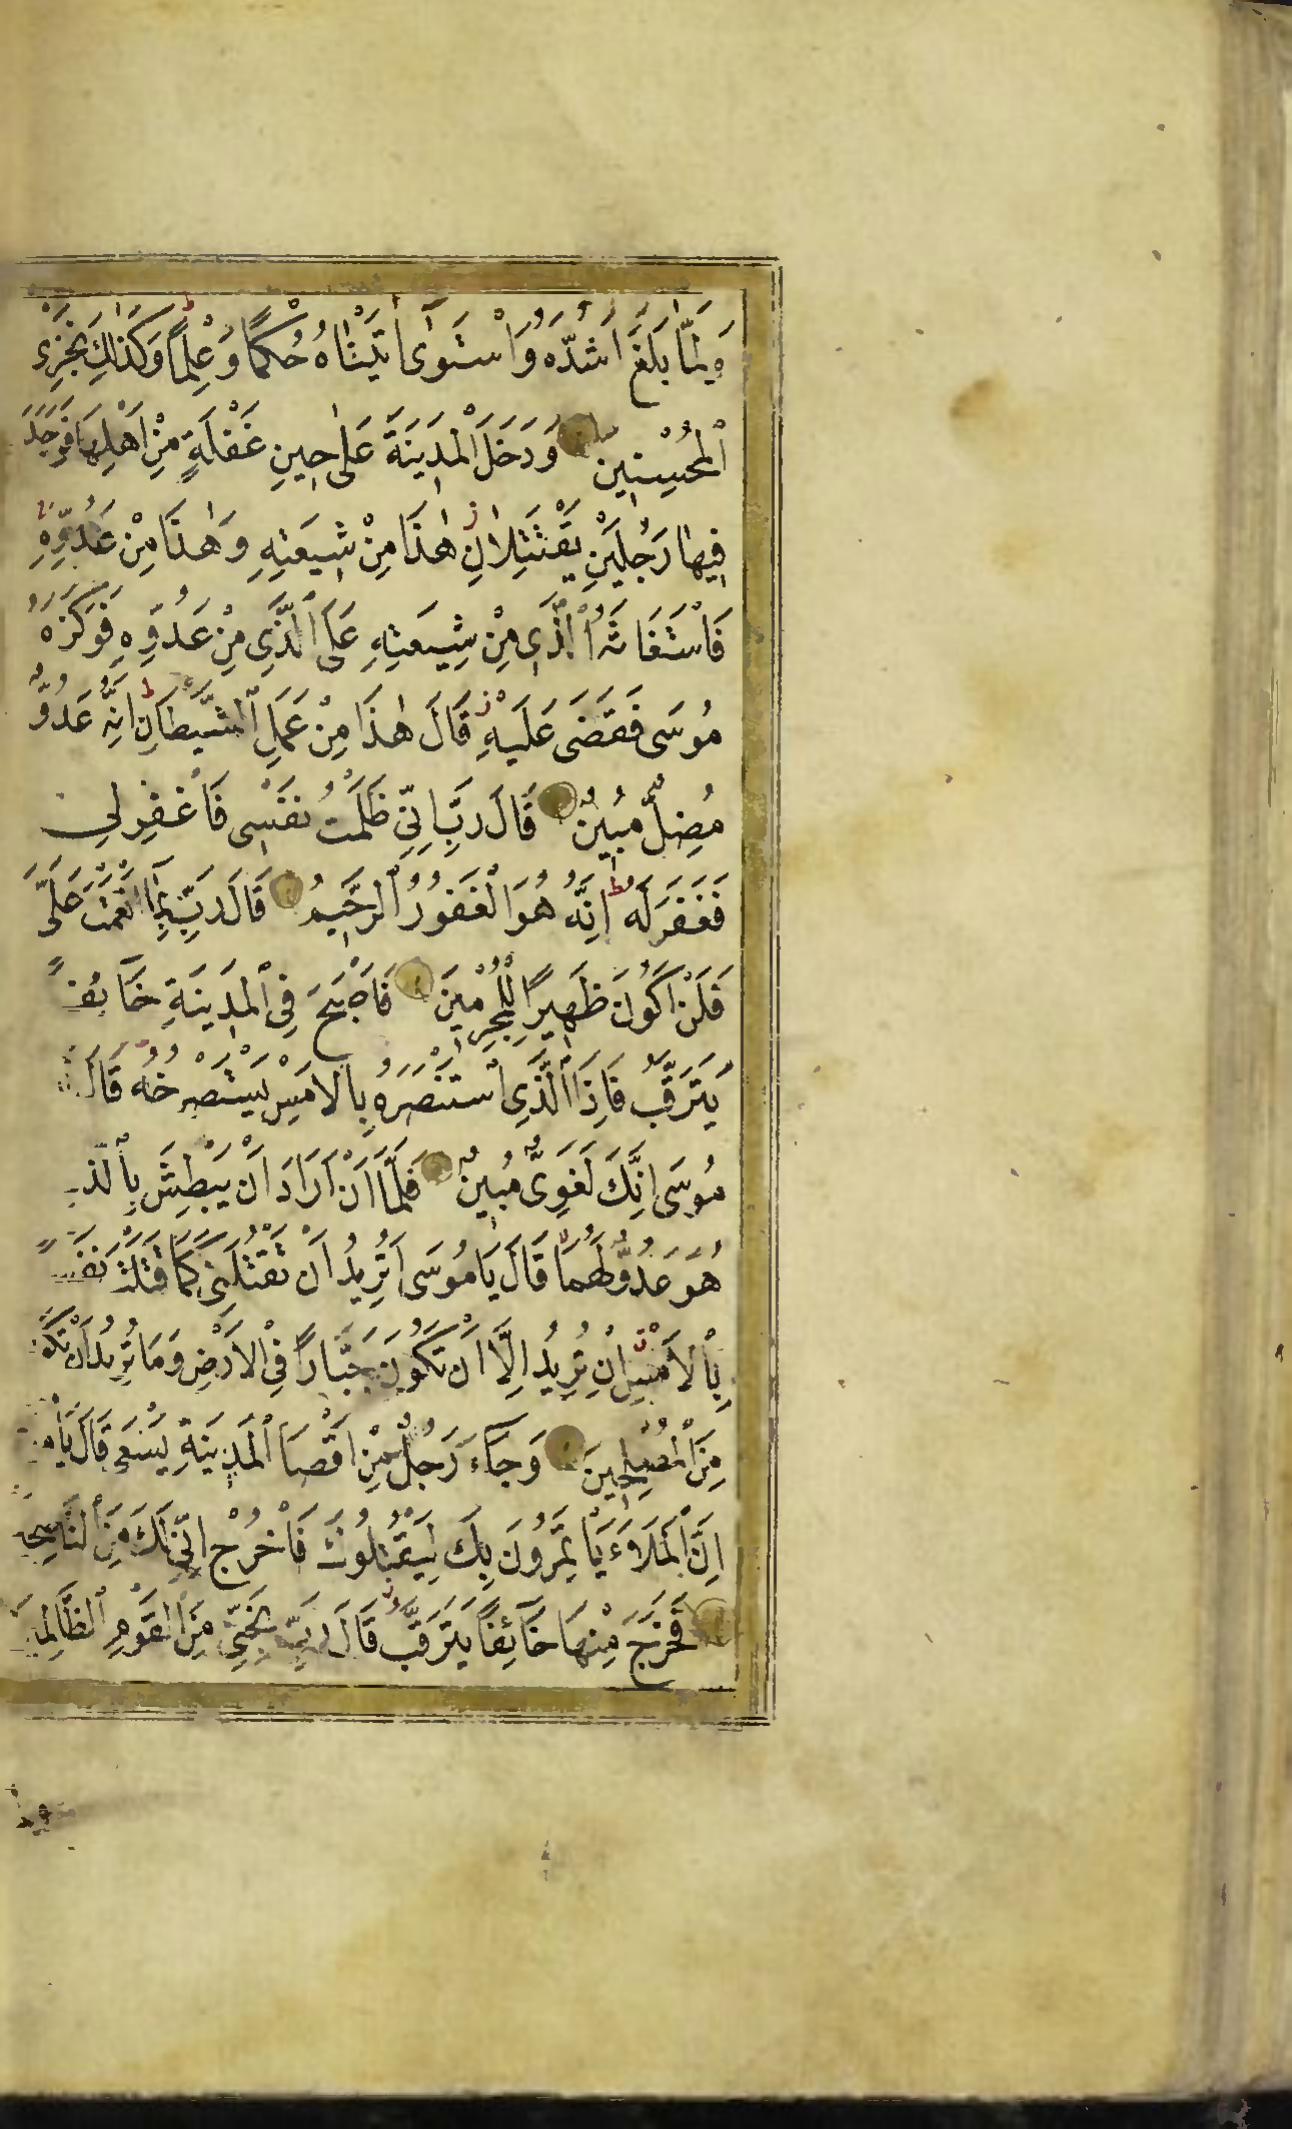 وَلَمَّا بَلَغَ اَشُدَّهُ وَاسْتَوٰى اٰتَيْنَاهُ حُكْمًا وَعِلْمًا وَكَذٰلِكَ نَجْزِى
الْمُحْسِنِينَ وَدَخَلَ الْمَدِينَةَ عَلٰى حِينِ غَفْلَةٍ مِنْ اَهْلِهَا فَوَجَدَ
فِيهَا رَجُلَيْنِ يَقْتَتِلَانِ هٰذَا مِنْ شِيعَتِهِ وَهٰذَا مِنْ عَدُوِّهِ
فَاسْتَغَاثَهُ الَّذِى مِنْ شِيعَتِهِ عَلَى الَّذِى مِنْ عَدُوِّهِ فَوَكَزَهُ
مُوسَى فَقَضَى عَلَيْهِ قَالَ هٰذَا مِنْ عَمَلِ الشَّيْطَانِ اِنَّهُ عَدُوٌّ
مُضِلٌّ مُبِينٌ قَالَ رَبِّ اِنِّى ظَلَمْتُ نَفْسِى فَاغْفِرْلِى
فَغَفَرَ لَهُ اِنَّهُ هُوَ الْغَفُورُ الرَّحِيمُ قَالَ رَبِّ بِمَا اَنْعَمْتَ عَلَىَّ
فَلَنْ اَكُونَ ظَهِيرًا لِلْمُجْرِمِينَ فَاَصْبَحَ فِى الْمَدِينَةِ خَائِفًا
يَتَرَقَّبُ فَاِذَا الَّذِى اسْتَنْصَرَهُ بِالْاَمْسِ يَسْتَصْرِخُهُ قَالَ
مُوسَى اِنَّكَ لَغَوِىٌّ مُبِينٌ فَلَمَّا اَنْ اَرَادَ اَنْ يَبْطِشَ بِالَّذِى
هُوَ عَدُوٌّ لَهُمَا قَالَ يَا مُوسَى اَتُرِيدُ اَنْ تَقْتُلَنِى كَمَا قَتَلْتَ نَفْسًا
بِالْاَمْسِ اِنْ تُرِيدُ اِلَّا اَنْ تَكُونَ جَبَّارًا فِى الْاَرْضِ وَمَا تُرِيدُ اَنْ تَكُونَ
مِنَ الْمُصْلِحِينَ وَجَاءَ رَجُلٌ مِنْ اَقْصَا الْمَدِينَةِ يَسْعَى قَالَ يَا
اِنَّ الْمَلَاَ يَأْتَمِرُونَ بِكَ لِيَقْتُلُوكَ فَاخْرُجْ اِنِّى لَكَ مِنَ النَّاصِحِينَ
فَخَرَجَ مِنْهَا خَائِفًا يَتَرَقَّبُ قَالَ رَبِّ نَجِّنِى مِنَ الْقَوْمِ الظَّالِمِينَ